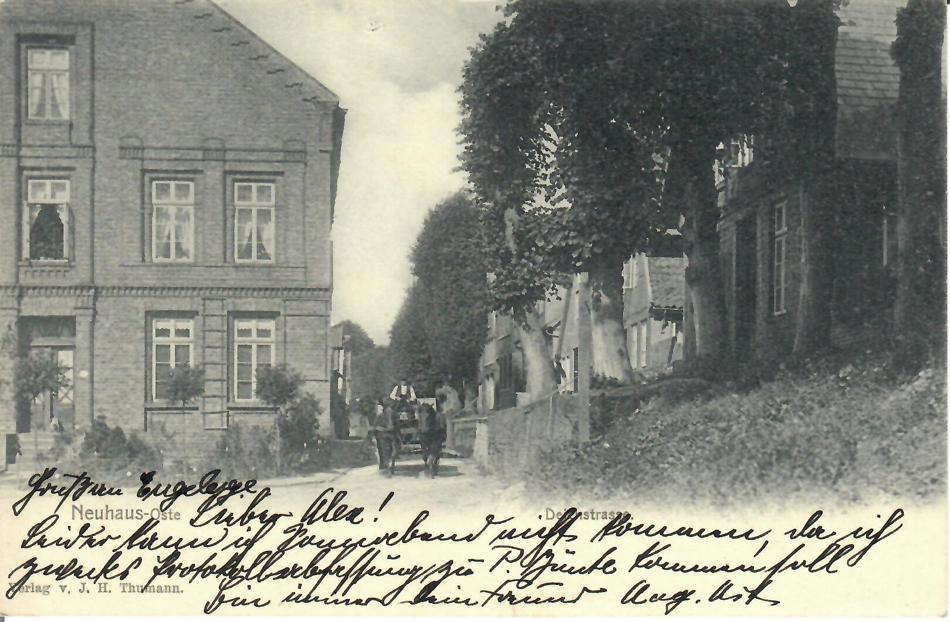 Gruß an Engelege
Neuhaus-Oste Deichstrasse.
Lieber Alex!
Leider kann ich Sonnabend nicht kommen, da ich
zwecks Protokollabfassung zu P. kommen soll
Verlag v. J. H. Thumann.
bin immer Dein Freund Aug.